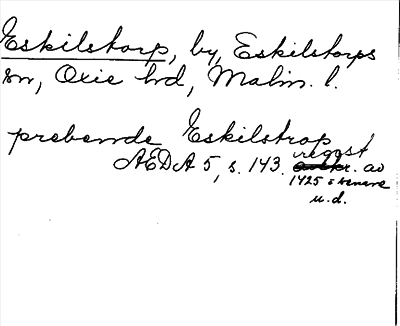 Eskilstorp, by, Eskilstorps
sn, Oxie hd, Malm. l.
prebende Eskilstrop
AEDA 5, s. 143. reggst av
1425 o senare
u.d.